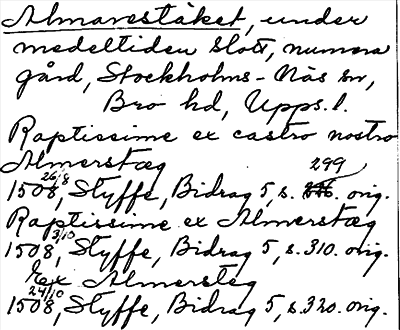 Almarestäket, under
medeltiden slott, numera
gård, Stockholms-Näs sn,
Bro hd, Upps. l.
Raptissime ex castro nostro
Almerstæg
26/8 299
1508, Styffe, Bidrag 5, s. orig.
Raptissime ex Almerstæg
3/10
1508, Styffe, Bidrag 5, s. 310. orig.
Ex Almersteg
24/10
1508, Styffe, Bidrag 5, s. 320. orig.